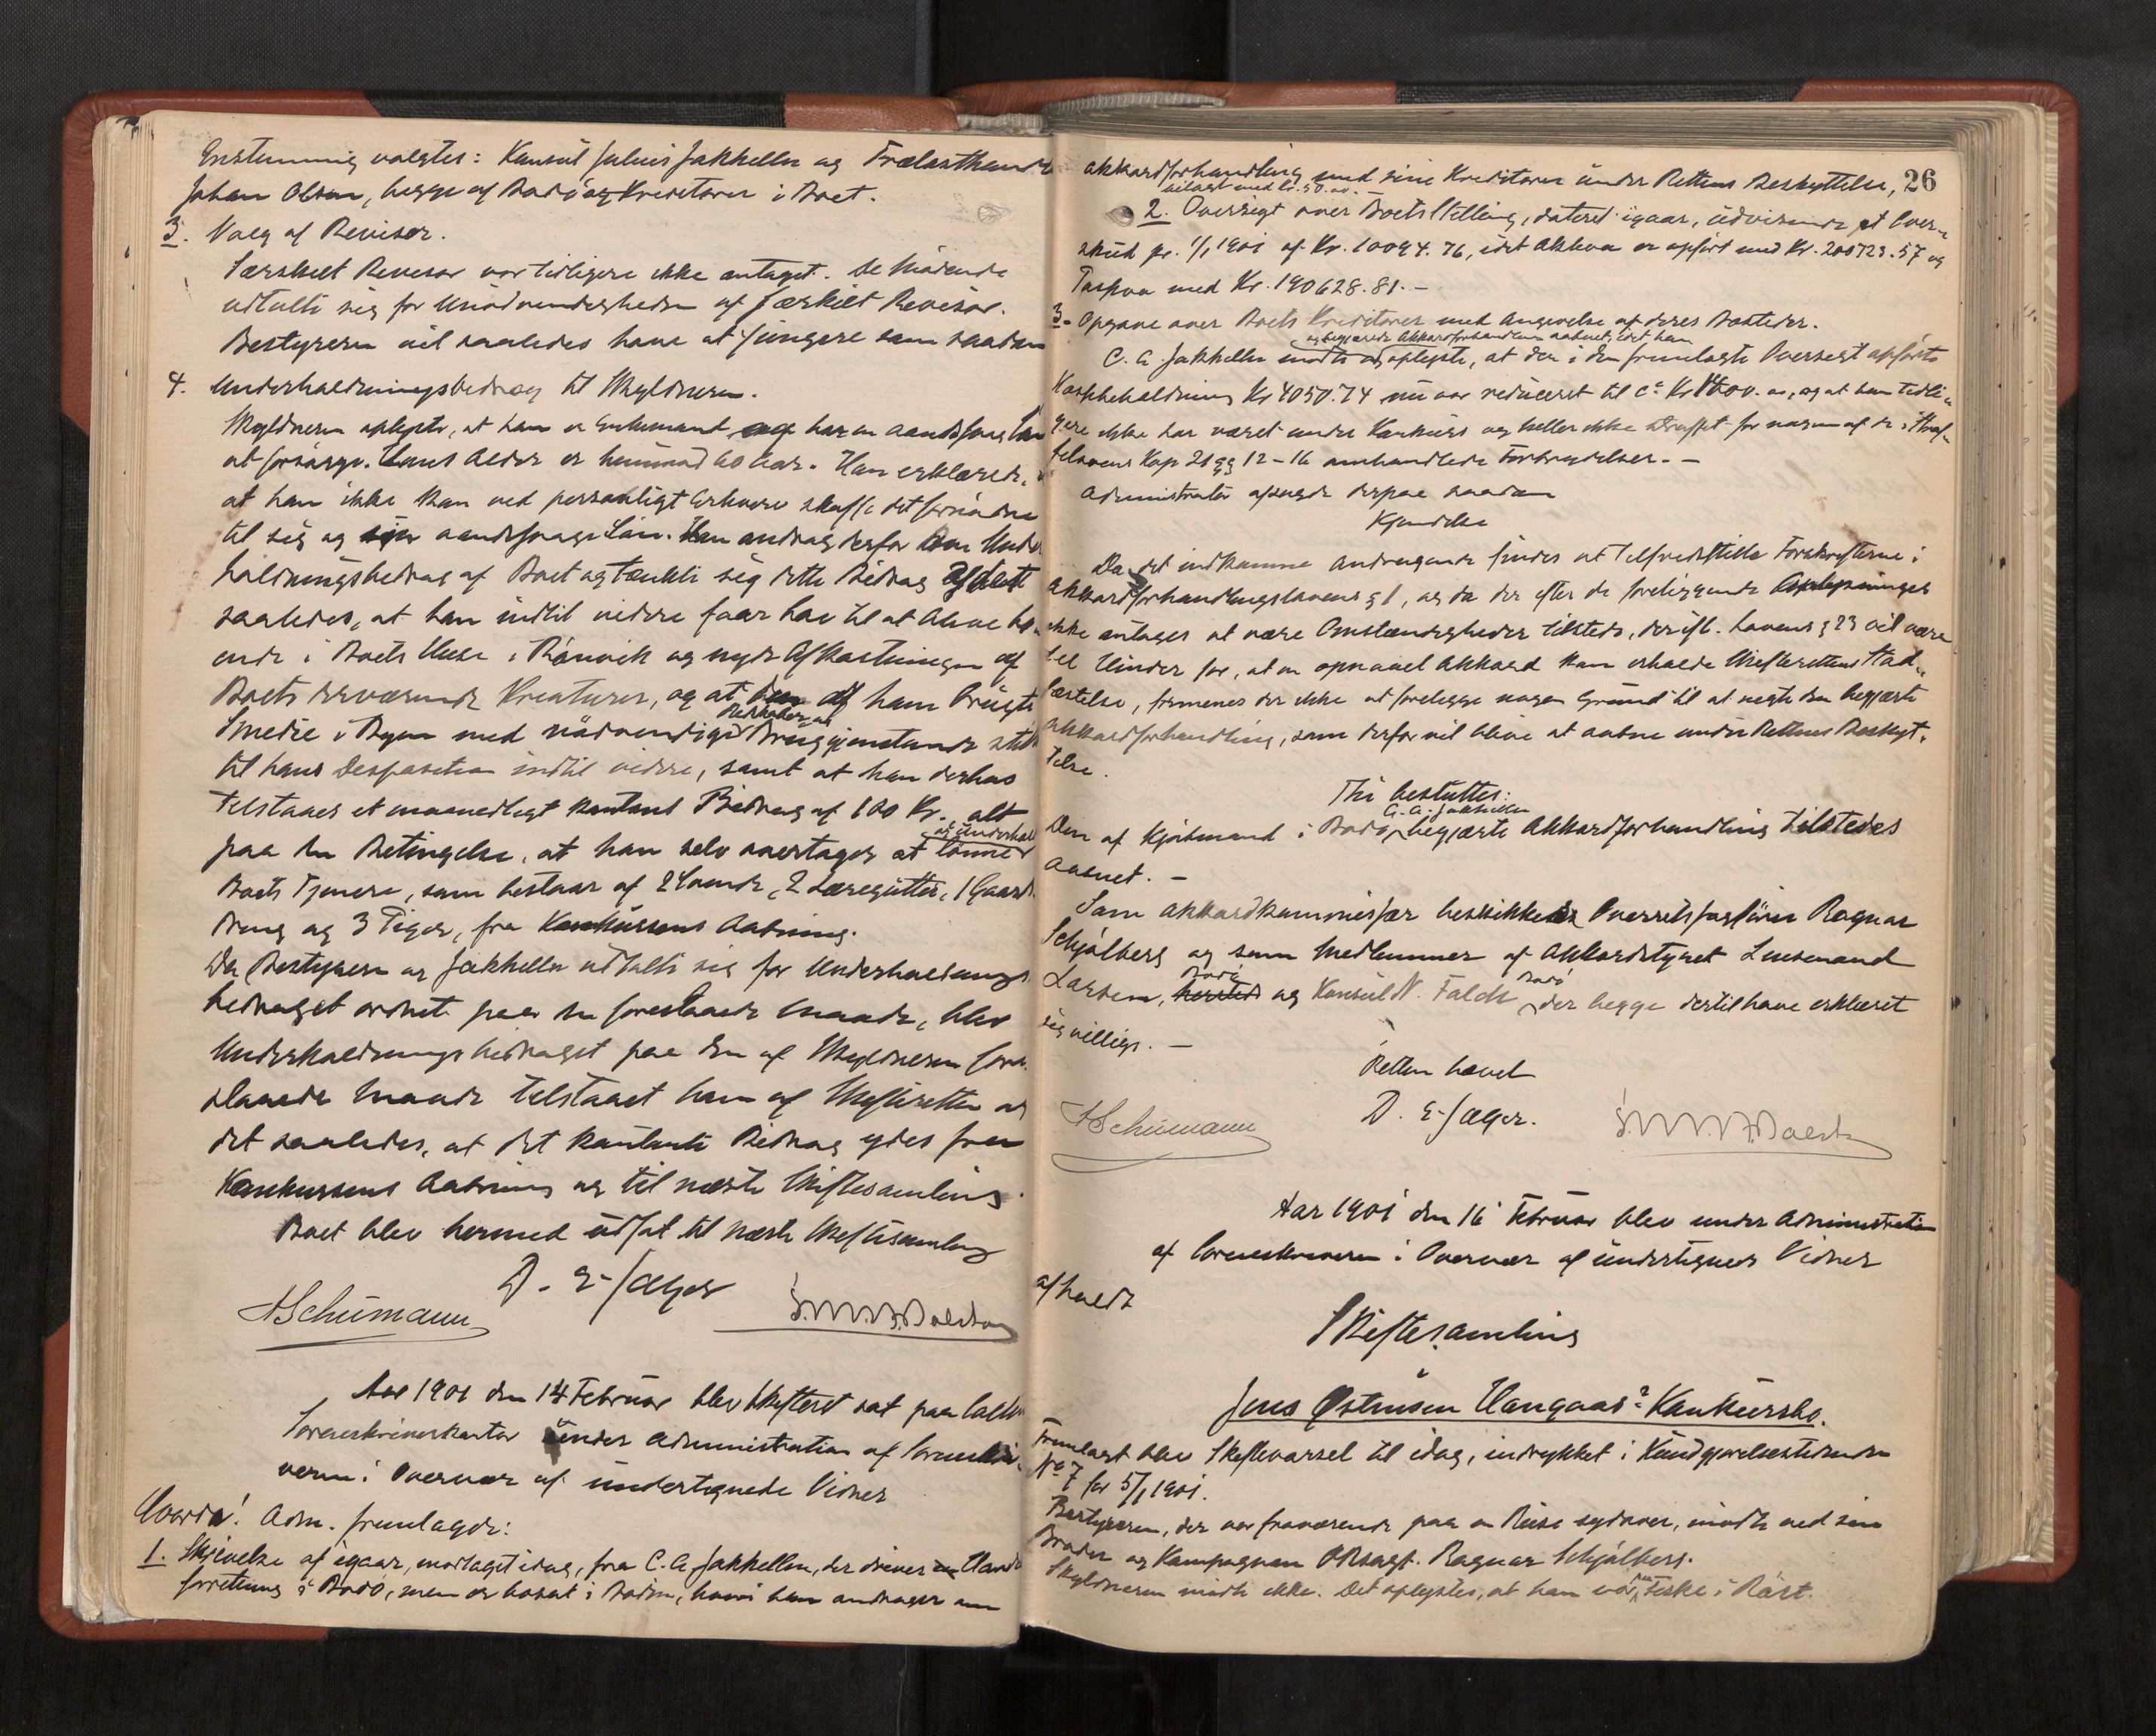 Enstemmig valgtes: Konsul Julius Jakhelln og Trælasthandl
Johan Olsen, begge af Bodø og Kreditorer i Boet.
3. Valg af Revisor.
Særskilt Revisor var tidligere ikke antaget. De Mødende
udtalte sig for Unødvendigheden af særskilt Revisor.
Bestyreren vil saaledes have at fungere som saadan
4. Underholdningsbidrag til Skyldneren.
Skyldneren oplyste, at han er Enkemand og har en aandssvag Søn
at forsørge. Hans Alder er henimod 60 Aar. Han erklærede,
at han ikke kan ved personligt Erhverv skaffe det fornødne
til sig og sin aandssvage Søn. Han androg derfor om Under
holdningsbidrag af Boet og tænkte sig dette Bidrag ydet
saaledes, at han indtil videre faar Lov til at blive bo-
ende i Boets Huse i Rønvik og nyde Afkastningen af
Boets derværende Kreaturer, og at den af ham brugte
Redskaber og
Smedie i Byen med nødvendige Brugsgjenstande stilles
til hans Disposition indtil videre, samt at han derhos
tilstaaes et maanedligt kontant Bidrag af 100 Kr., alt
og underholde
paa den Betingelse, at han selv overtager at lønne
Boets Tjenere, som bestaar af 2 Svende, 2 Læregutter, 1 Gaards
dreng og 3 Piger, fra Konkursens Aabning.
Da Bestyreren og Jakhelln udtalte sig for Underholdnings
bidraget ordnet paa den foreslaaede Maade, blev
Underholdningsbidraget paa den af Skyldneren fore
slaaede Maade tilstaaet ham af Skifteretten og
det saaledes, at det kontante Bidrag ydes fra
Konkursens Aabning og til næste Skiftesamling.
Boet blev hermed udsat til næste Skiftesamling
D. E. Jæger
HSchümann
Aar 1901 den 14 Februar blev Skifteret sat paa
Sorenskriverkontor under Administration af Sorenskri-
veren i Overvær af undertegnede Vidner
Hvorda! Adm. fremlagde:
1. Skrivelse af igaar, modtaget idag, fra C. A. Jakhelln, der driver en Handels
forretning i Bodø, men er bosat i Bodin, hvori han andrager om
26
akkordforhandling med sine Kreditorer under Rettens Beskyttelse,
bilagt med Kr. 50.00.
2. Oversigt over Boets Stilling, dateret igaar, udvisende et Over-
skud pr. 1/1 1901 af Kr. 10094.76, idet Aktiva er opført med Kr. 200723.57 og
Passiva med Kr. 190628.81.-
3. Opgave over Boets Kreditorer med Angivelse af deres Bosteder.
og begjærede Akkordforhandling aabnet, idet han
C. A. Jakhelln mødte og oplyste, at den i den fremlagte Oversigt opførte
Kassebeholdning Kr 4050.74 nu var reduceret til ca Kr 1800.00, og at han tidli-
gere ikke har været under Konkurs og heller ikke straffet for nogen af de i Straf-
felovens Kap 21 §§ 12-16 omhandlede Forbrydelser.-
Administrator afsagde derpaa saadan
Kjendelse
Da det indkomne Andragende findes at tilfredsstille Forskrifterne i
Akkordforhandlingslovens § 1, og da der efter de foreliggende Oplysninger
ikke antages at være Omstændigheder tilstede, der ifl. Lovens § 23 vil være
til Hinder for, at en opnaaet Akkord kan erholde Skifterettens Stad-
fæstelse, formenes der ikke at foreligge nogen Grund til at negte den begjærte
Akkordforhandling, som derfor vil blive at aabne under Rettens Beskyt-
telse.
Thi besluttes:
C. A. Jakhelln
Den af Kjøbmand i Bodø begjærte Akkordforhandling tilstedes
aabnet.-
Som Akkordkommissær beskikkedes Overretssagfører Ragnar
Schjølberg og som Medlemmer af Akkordstyret Lensmand
Bodø
Bodø
Larsen, hersteds og Konsul N. Falch der begge dertil have erklæret
sig villige.-
Retten hævet
D. E. Jæger.
HSchümann
Aar 1901 den 16 Februar blev under Administration
af Sorenskriveren i Overvær af undertegnede Vidner
afholdt
Skiftesamling
i
Jens Østensen Hangaas's Konkursbo.
Fremlagt blev Skiftevarsel til idag, indrykket i Kundgjørelsestidende
No 7 for 5/1 1901.
Bestyreren, der var fraværende paa en Reise sydover, mødte ved sin
Broder og Kompagnon ORsagf. Ragnar Schjølberg.
Skyldneren mødte ikke. Det oplystes, at han var paa Fiske i Røst.